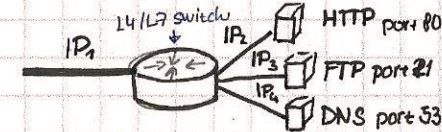 L4/L7 switch
IP1
IP2
HTTP port 80
IP3
FTP port 21
IP4
DNS port 53